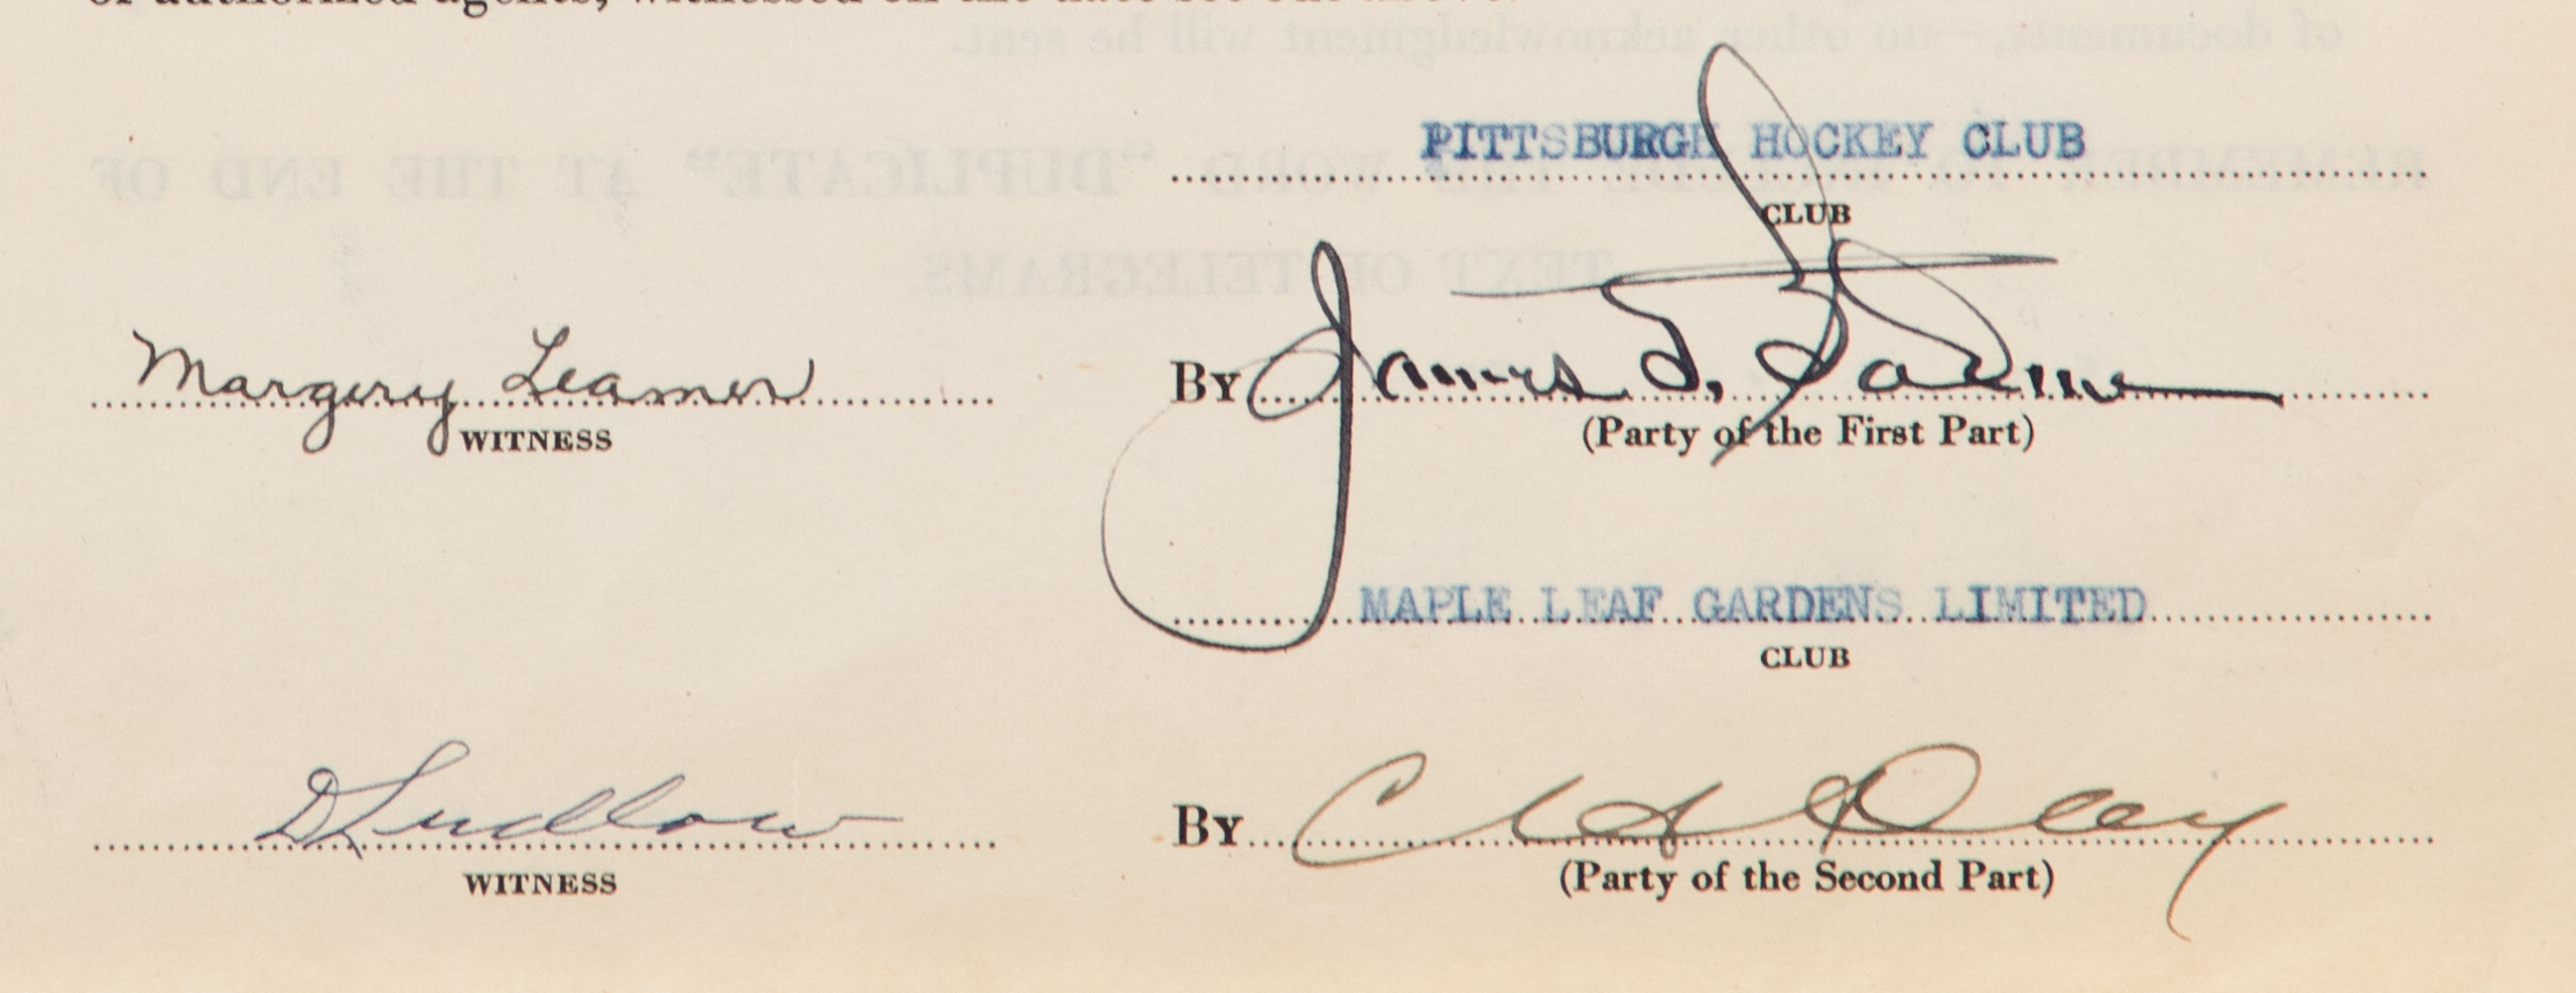 or authorized agents, witnessed on the date set out above.
PITTSBURGH HOCKEY CLUB
CLUB
Margery Leamer By James Balmer
WITNESS (Party of the First Part)
MAPLE LEAF GARDENS LIMITED
CLUB
D Ludlow By Day
WITNESS (Party of the Second Part)